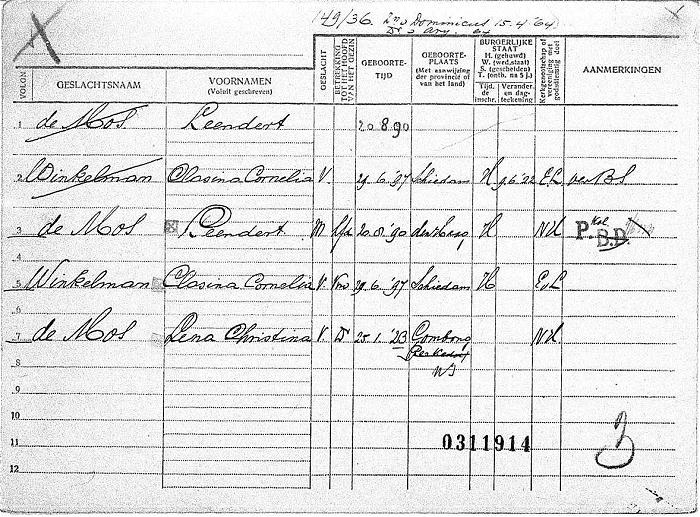 149/36. Dominicus 15.4.'64
VOLGN.
GESLACHTSNAAM
VOORNAMEN
(Voluit geschreven)
GESLACHT
BETREKKING TOT HET HOOFD VAN HET GEZIN
GEBOORTE-TIJD
GEBOORTE-PLAATS
(Met aanwijzing der provincie of van het land)
BURGERLIJKE STAAT
H. (gehuwd)
W. (wed.staat)
S. (gescheiden)
T. (ontb. na 5 j.)
Tijd. de inschr.
Verander. en dag-teekening
Kerkgenootschap of vereeniging met godsdienstig doel
AANMERKINGEN
1 de Mos. Leendert 20.8.90
2 Winkelman Clasina Cornelia V. 29.6.'97 Schiedam H 9.6.22 E.L.
3 de Mos Leendert M 20.8.'90 den Haag H N.H. P.
B.D.
5 Winkelman Clasina Cornelia V. Vrw 29.6.'97 Schiedam H E.L.
7 de Mos Lena Christina V. D 25.1.'23 Gombong N.H.
8 NI
9
10
11 0311914
12 3